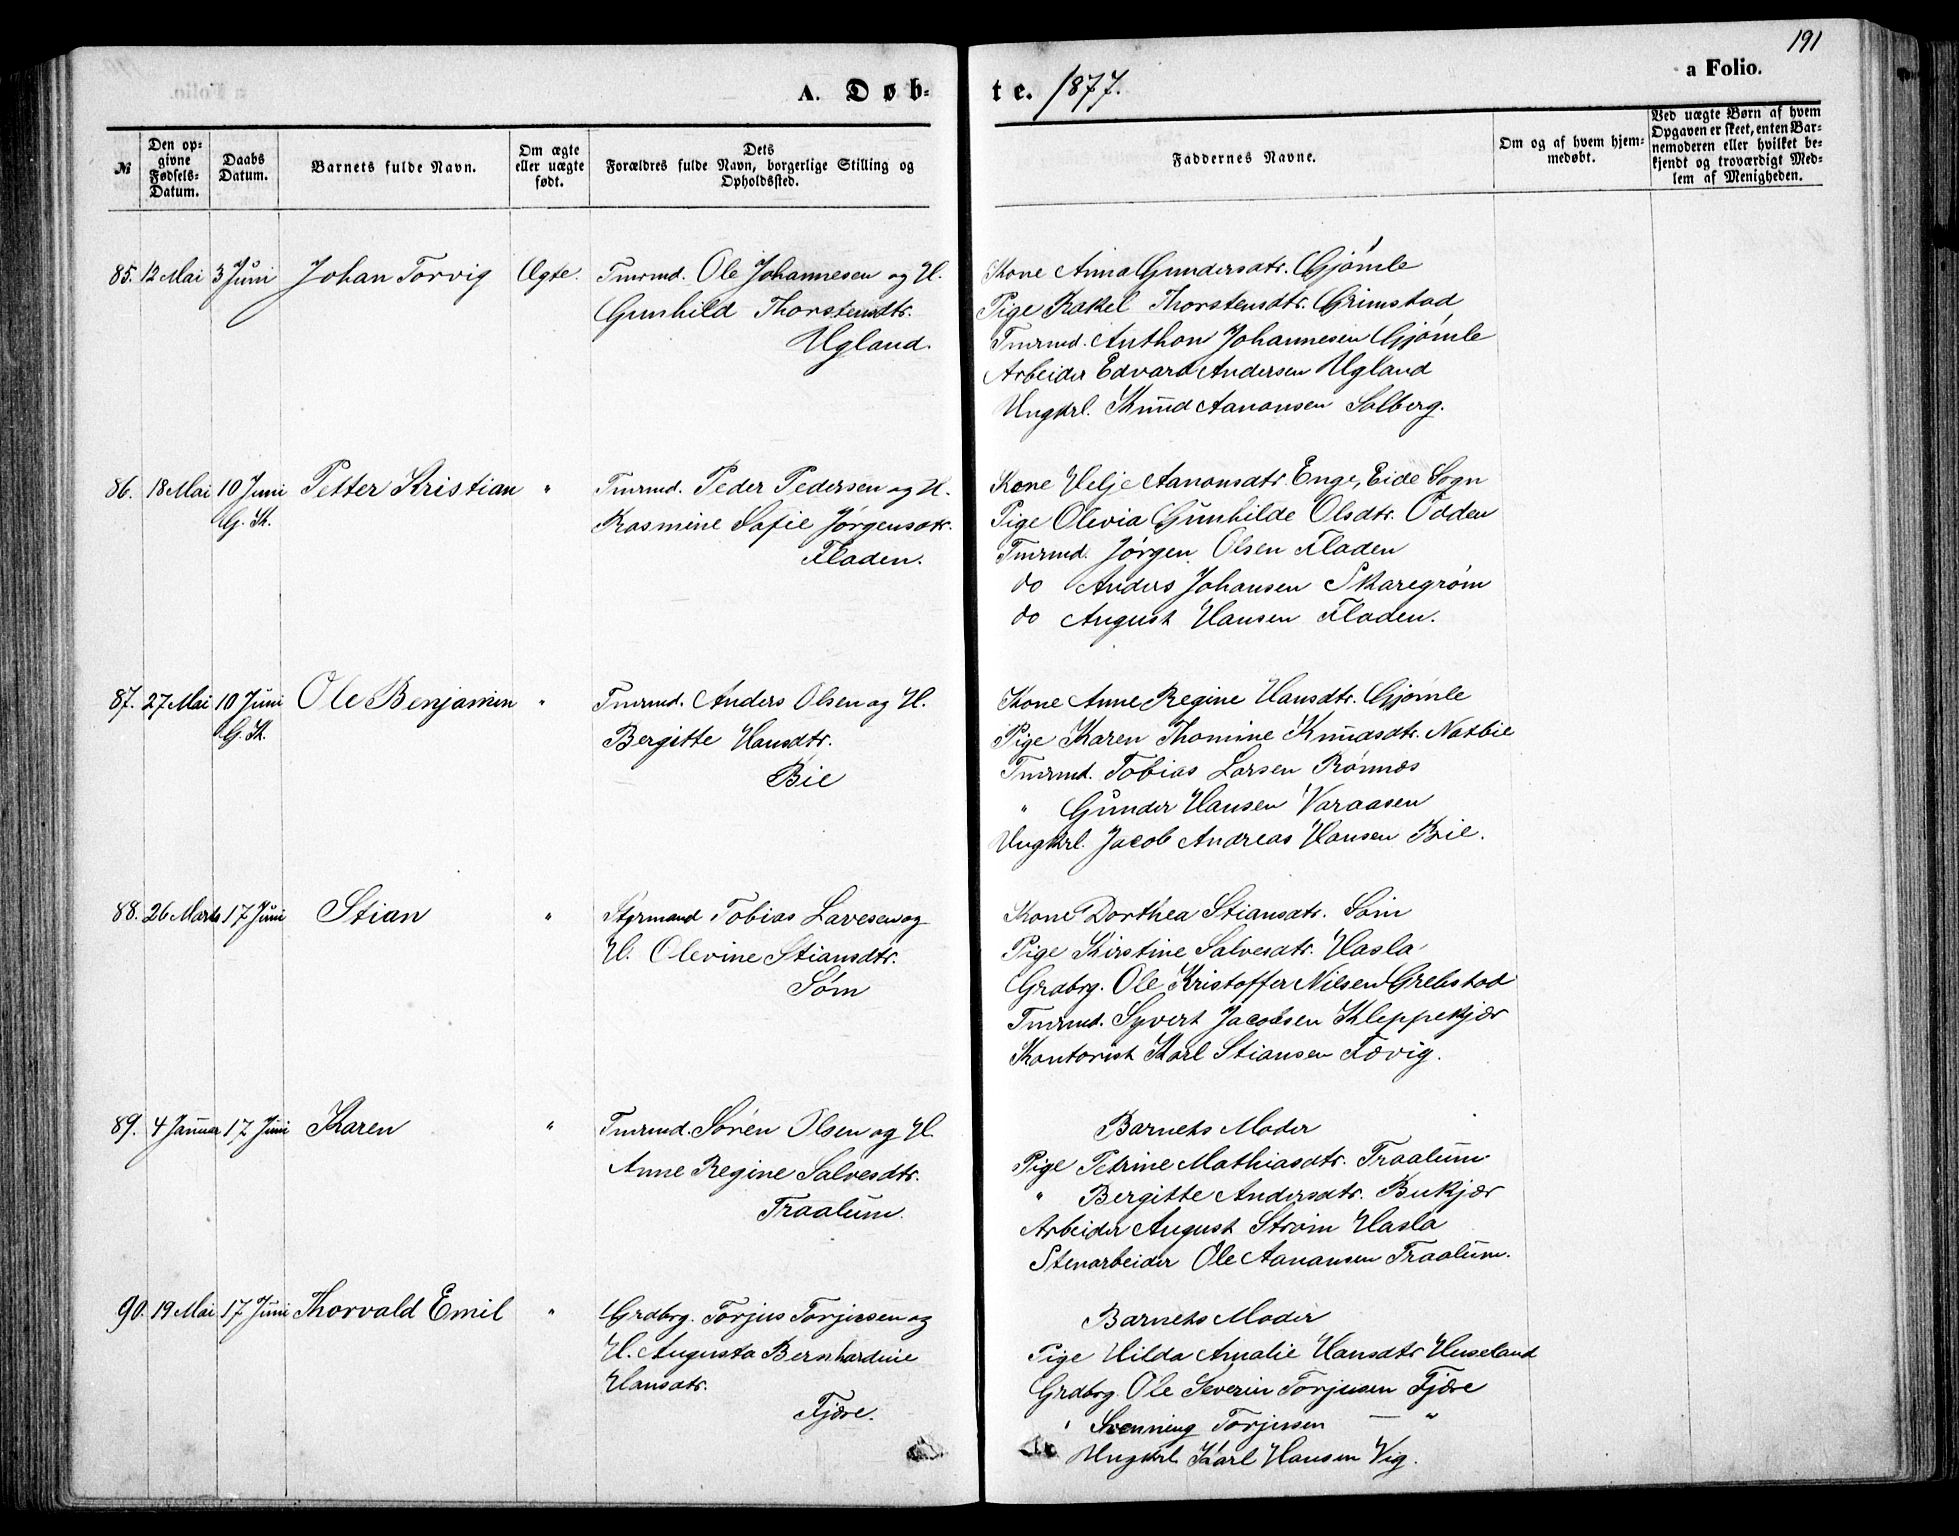 191
a Folio.
A. Døb-
te. 1877.
№
Den op-
givne
Fødsels-
Datum.
Daabs
Datum.
Barnets fulde Navn.
Om ægte
eller uægte
født.
Dets
Forældres fulde Navn, borgerlige Stilling og
Opholdssted.
Faddernes Navne.
Om og af hvem hjem-
medøbt.
Ved uægte Børn af hvem
Opgaven er skeet, enten Bar-
nemoderen eller hvilket be-
kjendt og troværdigt Med-
lem af Menigheden.
85. 12 Mai 3 Juni Johan Torvig Ægte. Tmrmd. Ole Johannesen og H.
Gunhild Thorstensdtr.
Ugland.
Kone Anna Gundersdtr. Gjømle
Pige Rakel Thorstensdtr. Grimstad
Tmrmd. Anthon Johannesen Gjømle
Arbeider Edvard Andersen Ugland
Ungkrl. Knud Aanonsen Solberg.
86. 18 Mai 10 Juni Petter Kristian " Tmrmd. Peder Pedersen og H.
G. K. Rasmine Sofie Jørgensdtr.
Fladen.
Kone Helje Aanonsdtr. Enge, Eide Sogn
Pige Olevia Gunhilde Olsdtr. Odden
Tmrmd. Jørgen Olsen Fladen
do Anders Johansen Skaregrøm
do August Hansen Fladen.
87. 27 Mai 10 Juni Ole Benjamin " Tmrmd. Anders Olsen og H.
G. K. Bergitte Hansdtr.
Bie
Kone Anne Regine Hansdtr. Gjømle
Pige Karen Thomine Knudsdtr. Natbie
Tmrmd. Tobias Larsen Rønnæs
" Gunder Hansen Varaasen
Ungkrl. Jacob Andreas Hansen Bie.
88. 26 Marts 17 Juni Stian " Styrmand Tobias Lavesen og
H. Olevine Stiansdtr.
Søm
Kone Dorthea Stiansdtr. Søm
Pige Kirstine Salvesdtr. Hasla
Grdbrg. Ole Kristoffer Nilsen Grebstad
Tmrmd. Syvert Jacobsen Kleppekjær
Kontorist Karl Stiansen Fævig.
89. 4 Januar 17 Juni Karen " Tmrmd. Søren Olsen og H.
Anne Regine Salvesdtr.
Traalum.
Barnets Moder
Pige Petrine Mathiasdtr. Traalum
" Bergitte Andersdtr. Bukjær
Arbeider August Strøm Hasla
Stenarbeider Ole Aanansen Traalum.
90. 19 Mai 17 Juni Thorvald Emil " Grdbrg. Torjus Torjussen og
H. Augusta Bernhardine
Hansdtr.
Fjære.
Barnets Moder
Pige Hilda Amalie Hansdtr Heseland
Grdbrg. Ole Severin Torjusen Fjære
" Svenning Torjussen — "
Ungkrl. Karl Hansen Vig.